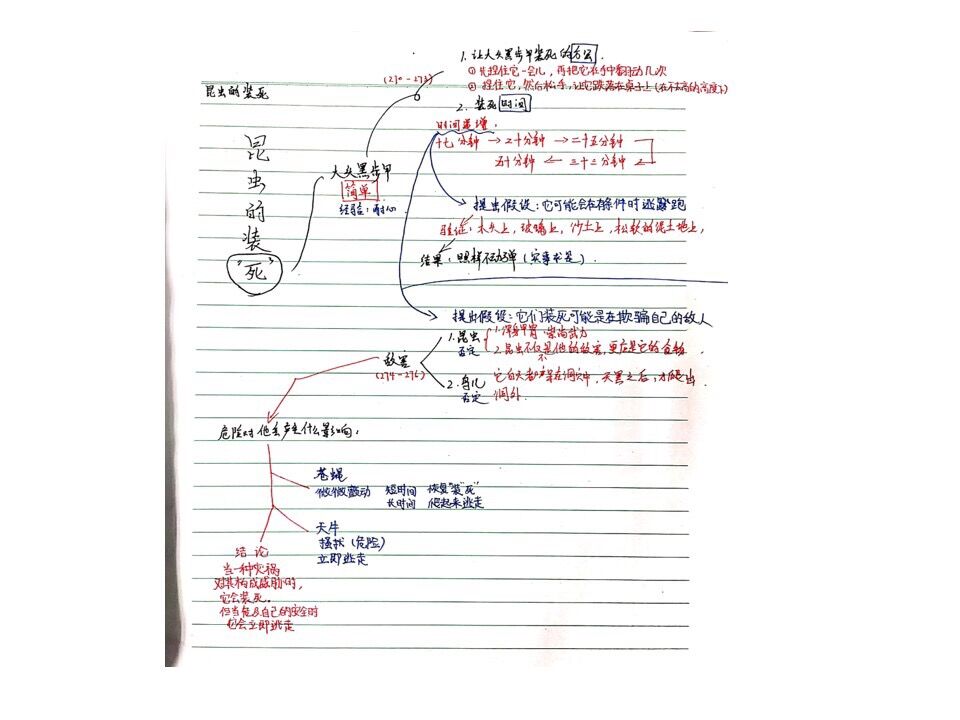 昆虫的装死
昆虫的装“死”
1. 让大头黑步甲装死的方法.
① 先捏住它一会儿，再把它在手中翻动几次
② 捏住它，然后松手，让它跌落在桌子上(在不太高的高度下)
2. 装死时间
时间递增.
十七分钟→二十分钟→二十五分钟
五十分钟←三十三分钟
(270-273)
大头黑步甲
简单
经验：耐心
提出假设：它可能会在有条件时逃跑
验证：木头上，玻璃上，沙土上，松软的泥土地上，
结果：照样不动弹(实事求是)
提出假设：它们装死可能是在欺骗自己的敌人
敌害
(274-276)
1.昆虫
否定
1.浑身甲胄 崇尚武力
2.昆虫不仅不是他的敌害，更应是它的食物.
2.鸟儿
否定
它白天都在洞穴中，天黑之后，才爬出
洞外.
危险对他会产生什么影响：
苍蝇
微微颤动 短时间 恢复“装”死
长时间 爬起来逃走
天牛
搔扰(危险)
立即逃走
结论
当一种灾祸
对其构成威胁时，
它会装死。
但当危及自己的安全时
它会立即逃走